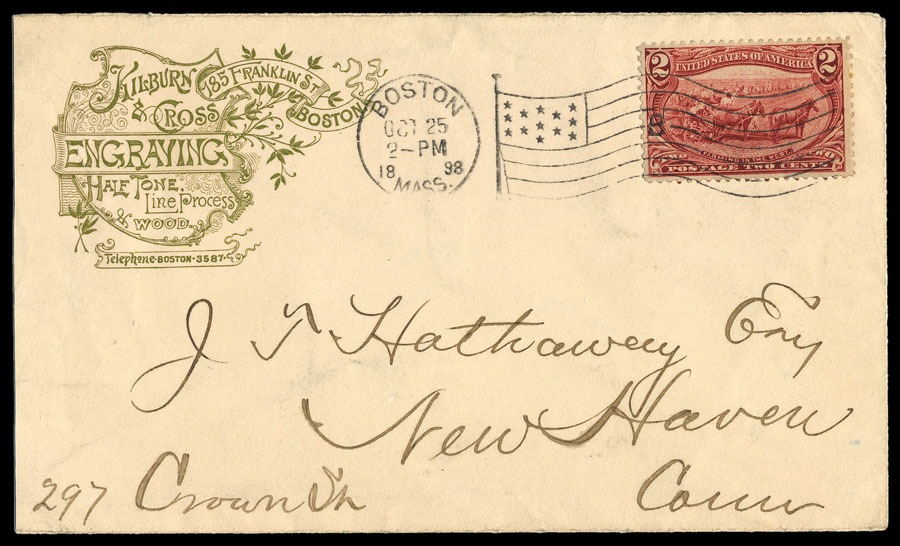 KILBURN
& CROSS
185 FRANKLIN ST
BOSTON
ENGRAVING
HALF TONE,
LINE, PROCESS
& WOOD.
Telephone·BOSTON·3587·
BOSTON
OCT 25
2-PM
18 98
MASS.
2 2
UNITED STATES OF AMERICA
B
FARMING IN THE WEST
POSTAGE TWO CENTS
J T Hathaway Esq
New Haven
297 Crown St
Conn